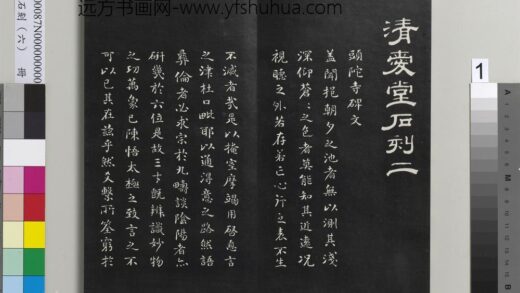 远方书画网-www.yfshuhua.com
清愛堂石刻二
頭陀寺碑文
蓋聞挹朝夕之池者無以測其淺
深仰蒼〻之色者莫能知其遠況
視聽之外若存若亡心行之表不生
不滅者哉是以掩室摩竭用啓息言
之津杜口毗耶以通得意之路然語
彝倫者必求宗於九疇談陰陽者亦
研幾於六位是故三才既辨識妙物
之功萬象已陳悟太極之致言之不
可以已其在茲乎然爻繫所筌窮於
石刻（六）
1